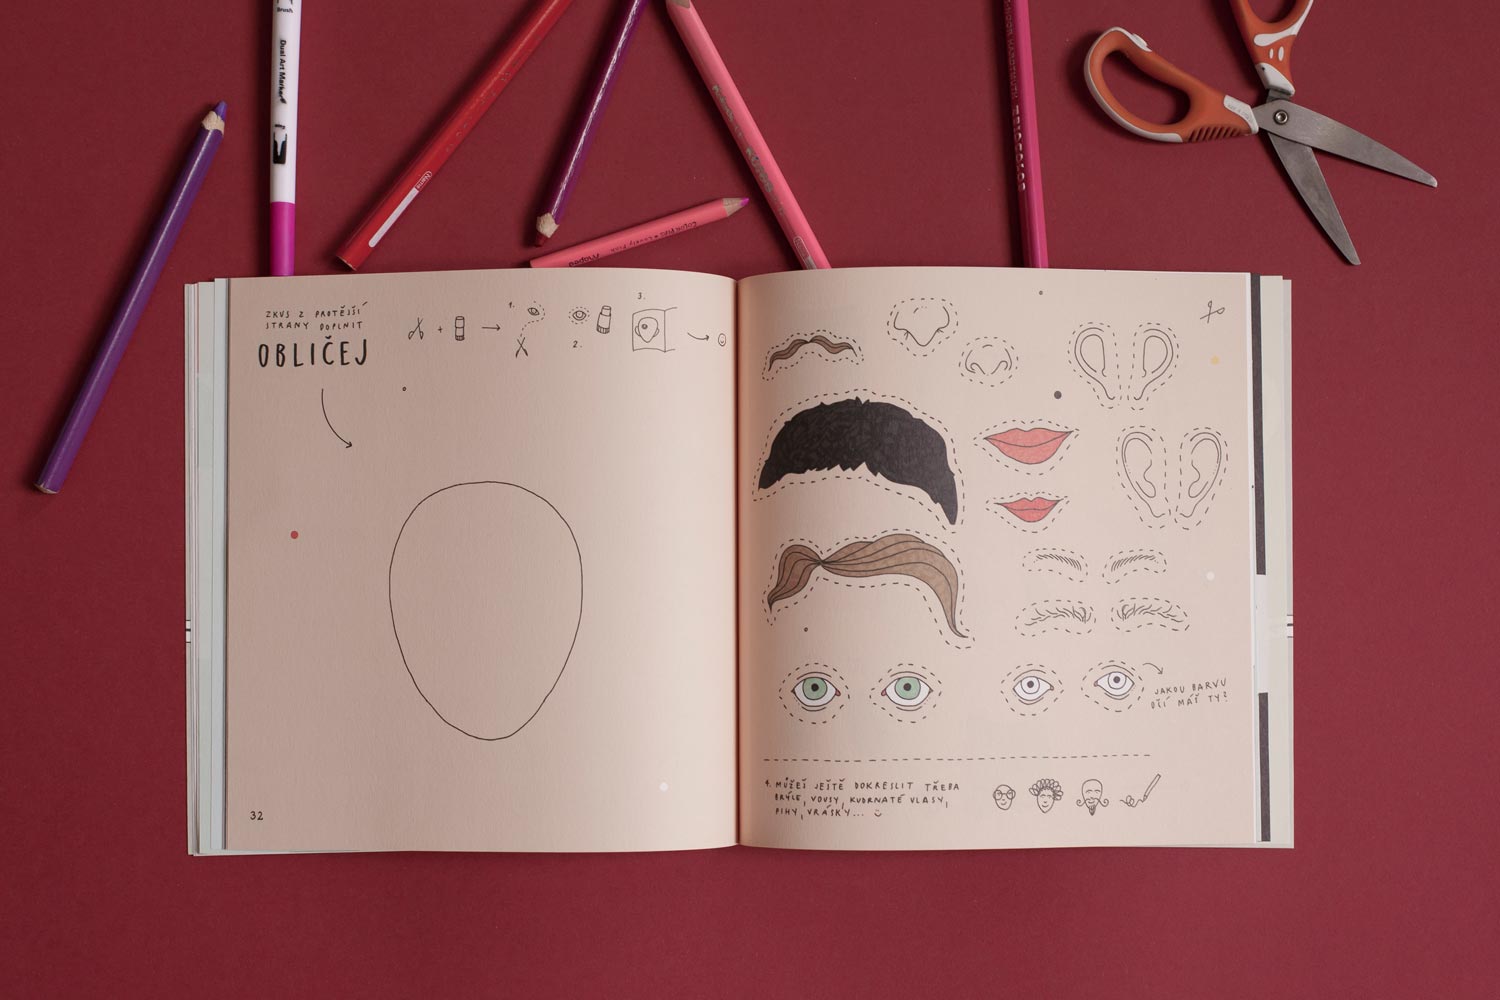 Brush
Dual Art Marker
ZKUS Z PROTĚJŠÍ
STRANY DOPLNIT
OBLIČEJ
1.
2.
3.
JAKOU BARVU
OČÍ MÁŠ TY?
4. MŮŽEŠ JEŠTĚ DOKRESLIT TŘEBA
BRÝLE, VOUSY, KUDRNATÉ VLASY,
PIHY, VRÁSKY...
32